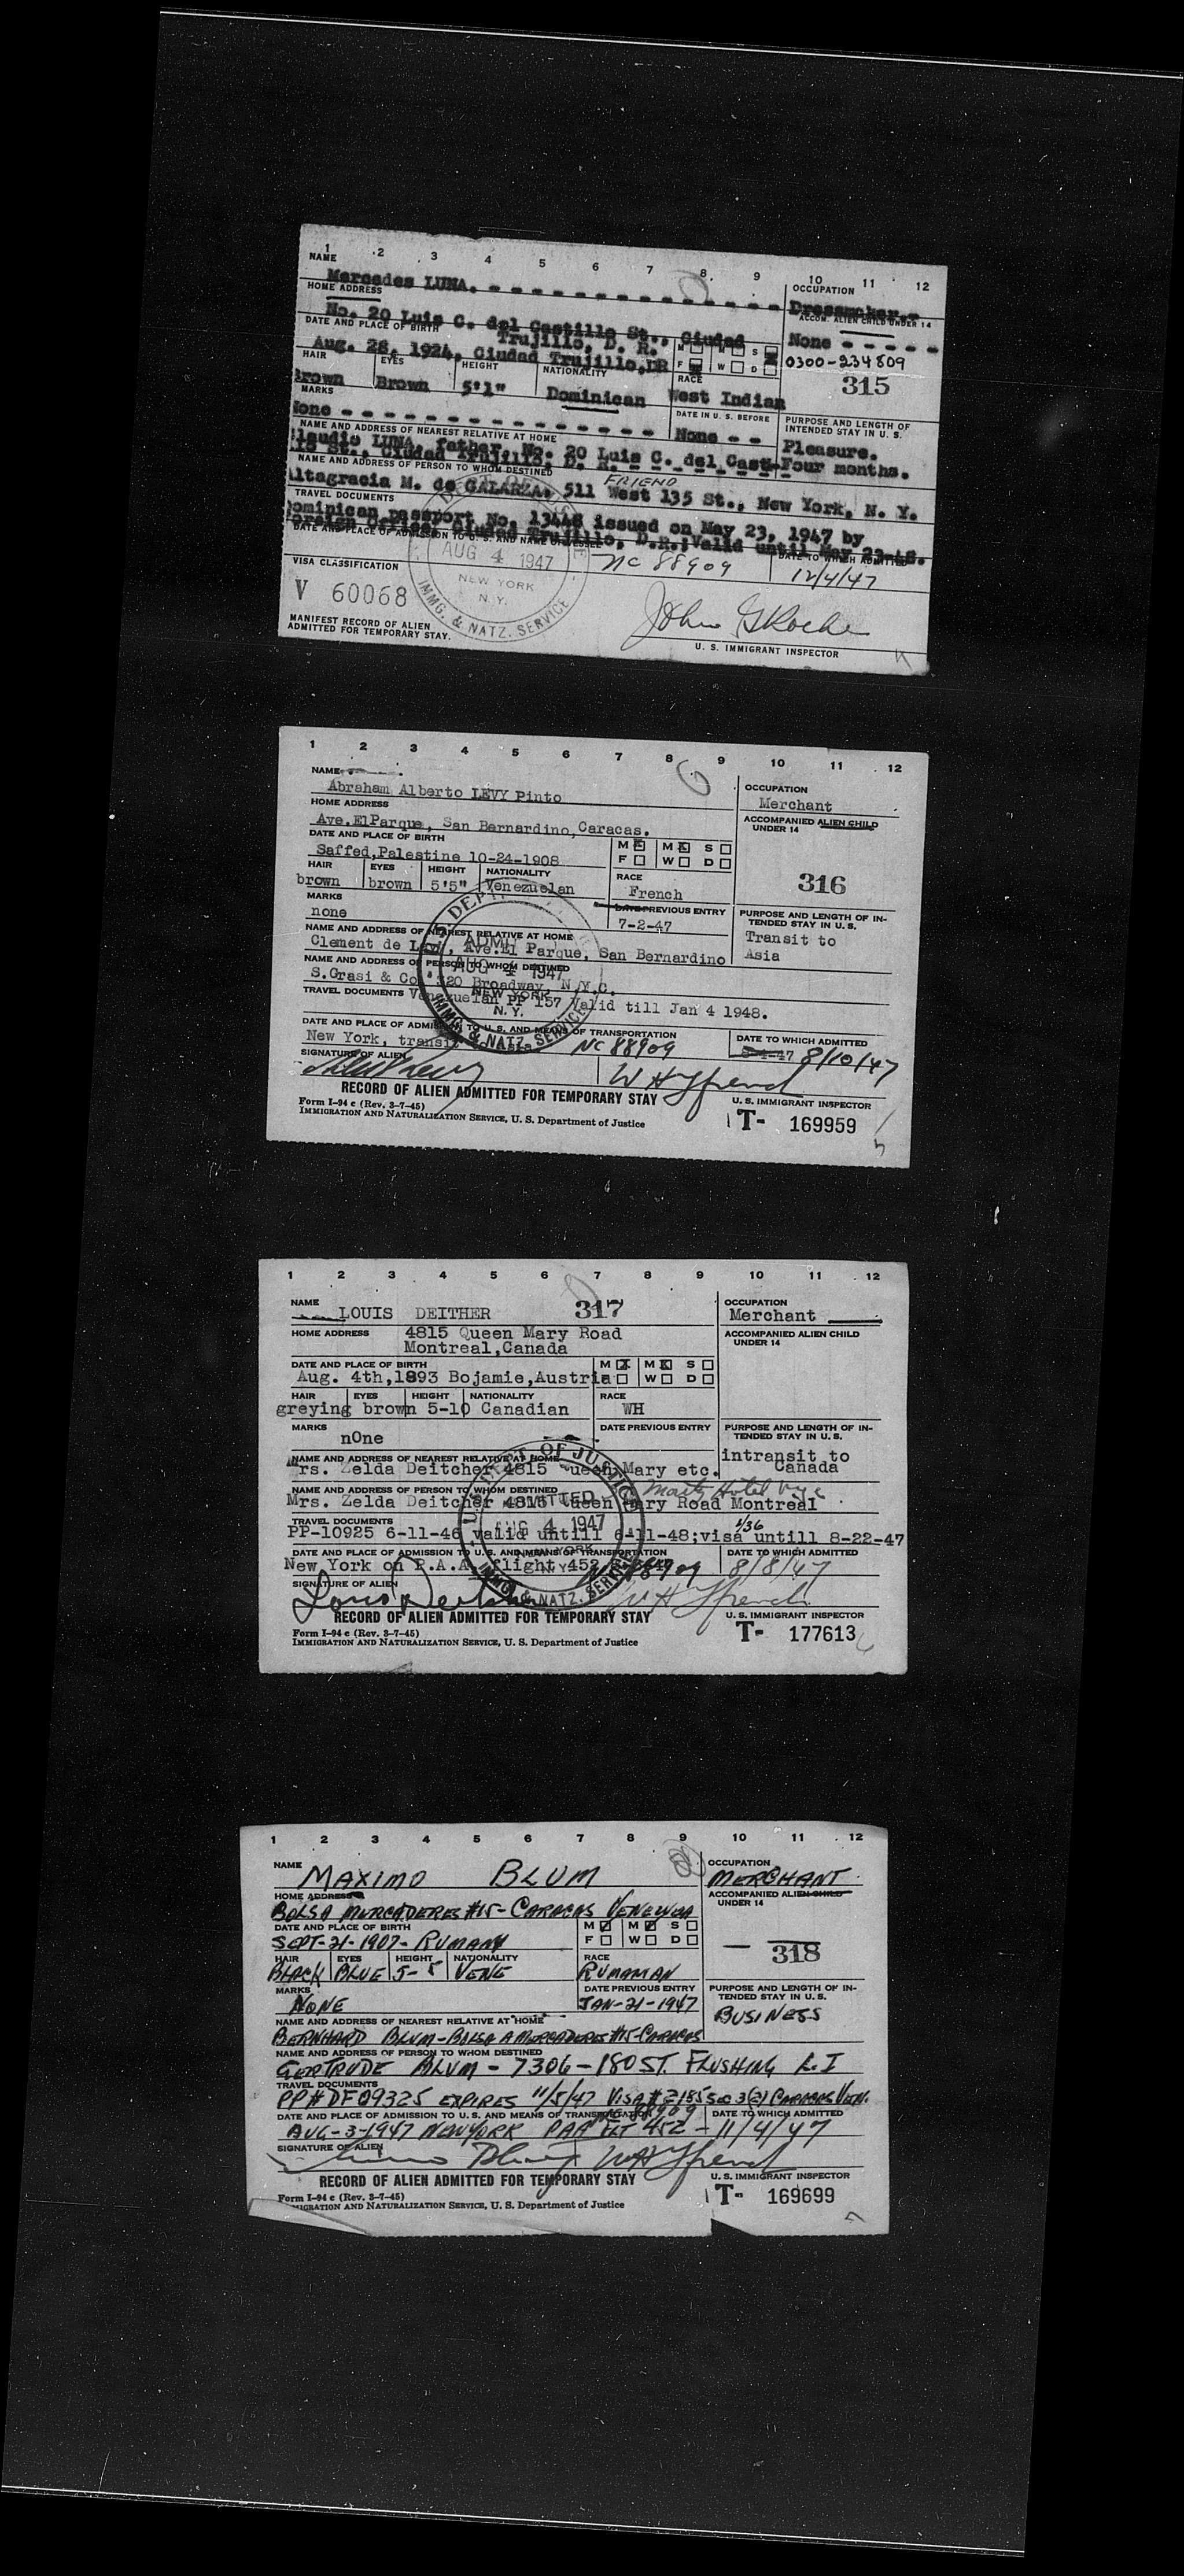 1 2 3 4 5 6 7 8 9 10 11 12
NAME OCCUPATION
Mercedes LUNA. - - - - - - - - - - - - - - - Dressmaker.-
HOME ADDRESS ACCOM. ALIEN CHILD UNDER 14
No. 20 Luis C. del Castillo St., Ciudad None - - - - -
DATE AND PLACE OF BIRTH Trujillo, D. R. M M S
Aug. 28, 1924, Ciudad Trujillo,DR F W D 0300-234809
HAIR EYES HEIGHT NATIONALITY RACE 315
Brown Brown 5'1" Dominican West Indian
MARKS DATE IN U. S. BEFORE PURPOSE AND LENGTH OF
INTENDED STAY IN U. S.
None - - - - - - - - - - - - None - - Pleasure.
NAME AND ADDRESS OF NEAREST RELATIVE AT HOME
Claudio LUNA, father, No. 20 Luis C. del Cast- Four months.
illo St., Ciudad Trujillo, D. R. - - - - - -
NAME AND ADDRESS OF PERSON TO WHOM DESTINED FRIEND
Altagracia M. de GALARZA, 511 West 135 St., New York, N. Y.
TRAVEL DOCUMENTS
Dominican passport No. 13448 issued on May 23, 1947 by
Foreign Office, Ciudad Trujillo, D.R.;Valid until May 23-48.
DATE AND PLACE OF ADMISSION TO U. S. AND NAME OF VESSEL DATE TO WHICH ADMITTED
AUG 4 1947 NC 88909 12/4/47
VISA CLASSIFICATION NEW YORK
V 60068 N. Y.
IMMG. & NATZ. SERVICE
John G Roche
MANIFEST RECORD OF ALIEN
ADMITTED FOR TEMPORARY STAY. U. S. IMMIGRANT INSPECTOR
1 2 3 4 5 6 7 8 9 10 11 12
NAME OCCUPATION
Abraham Alberto LEVY Pinto Merchant
HOME ADDRESS ACCOMPANIED ALIEN CHILD
UNDER 14
Ave.ElParque, San Bernardino,Caracas.
DATE AND PLACE OF BIRTH M M S
Saffed,Palestine 10-24-1908 F W D
HAIR EYES HEIGHT NATIONALITY RACE 316
brown brown 5'5" Venezuelan French
MARKS DATE PREVIOUS ENTRY PURPOSE AND LENGTH OF IN-
TENDED STAY IN U. S.
none 7-2-47 Transit to
NAME AND ADDRESS OF NEAREST RELATIVE AT HOME
Clement de Levy, Ave.El Parque, San Bernardino Asia
NAME AND ADDRESS OF PERSON TO WHOM DESTINED
S.Grasi & Co 320 Broadway, N.Y.C.
AUG 4 1947
NEW YORK
N. Y.
IMMG. & NATZ. SERVICE
TRAVEL DOCUMENTS Venezuelan PP 157 Valid till Jan 4 1948.
DATE AND PLACE OF ADMISSION TO U. S. AND MEANS OF TRANSPORTATION DATE TO WHICH ADMITTED
New York, transit to Asia NC 88909 8/10/47
SIGNATURE OF ALIEN
RECORD OF ALIEN ADMITTED FOR TEMPORARY STAY U. S. IMMIGRANT INSPECTOR
Form I-94 c (Rev. 3-7-45)
IMMIGRATION AND NATURALIZATION SERVICE, U. S. Department of Justice T- 169959
1 2 3 4 5 6 7 8 9 10 11 12
NAME 317 OCCUPATION
LOUIS DEITHER Merchant
HOME ADDRESS 4815 Queen Mary Road ACCOMPANIED ALIEN CHILD
UNDER 14
Montreal,Canada
DATE AND PLACE OF BIRTH M M S
Aug. 4th,1893 Bojamie,Austria F W D
HAIR EYES HEIGHT NATIONALITY RACE
greying brown 5-10 Canadian WH
MARKS DATE PREVIOUS ENTRY PURPOSE AND LENGTH OF IN-
TENDED STAY IN U. S.
nOne intransit to
Canada
NAME AND ADDRESS OF NEAREST RELATIVE AT HOME
Mrs. Zelda Deitcher 4815 Queen Mary etc.
NAME AND ADDRESS OF PERSON TO WHOM DESTINED Hotel nyc
Mrs. Zelda Deitcher 4815 Queen Mary Road Montreal
U. S. DEPT OF JUSTICE
ADMITTED
AUG 4 1947
NEW YORK
N. Y.
IMMG. & NATZ. SERVICE
TRAVEL DOCUMENTS
PP-10925 6-11-46 valid untill 6-11-48;visa untill 8-22-47
DATE AND PLACE OF ADMISSION TO U. S. AND MEANS OF TRANSPORTATION DATE TO WHICH ADMITTED
New York on P.A.A. flight 452 8/8/47
SIGNATURE OF ALIEN
RECORD OF ALIEN ADMITTED FOR TEMPORARY STAY U. S. IMMIGRANT INSPECTOR
Form I-94 c (Rev. 3-7-45)
IMMIGRATION AND NATURALIZATION SERVICE, U. S. Department of Justice T- 177613
1 2 3 4 5 6 7 8 9 10 11 12
NAME OCCUPATION
MAXIMO BLUM MERCHANT
HOME ADDRESS ACCOMPANIED ALIEN CHILD
UNDER 14
BOLSA MERCADERES #15- CARACAS
DATE AND PLACE OF BIRTH M M S
SEPT-21-1907- RUMANY F W D
HAIR EYES HEIGHT NATIONALITY RACE 318
BLACK BLUE 5-5 VENE RUMAMAN
MARKS DATE PREVIOUS ENTRY PURPOSE AND LENGTH OF IN-
TENDED STAY IN U. S.
NONE JAN-21-1947 BUSINESS
NAME AND ADDRESS OF NEAREST RELATIVE AT HOME
BERNHARD BLUM-BOLSA A MERCADERES #15-CARACAS
NAME AND ADDRESS OF PERSON TO WHOM DESTINED
GERTRUDE BLUM - 7306-180 ST. FLUSHING L.I
TRAVEL DOCUMENTS
PP# DF09325 EXPIRES 11/5/47 VISA # 2185 SEC 3(2) CARACAS VEN.
DATE AND PLACE OF ADMISSION TO U. S. AND MEANS OF TRANSPORTATION DATE TO WHICH ADMITTED
AUG-3-1947 NEWYORK PAA FLT 452 - 11/4/47
SIGNATURE OF ALIEN
RECORD OF ALIEN ADMITTED FOR TEMPORARY STAY U. S. IMMIGRANT INSPECTOR
Form I-94 c (Rev. 3-7-45)
IMMIGRATION AND NATURALIZATION SERVICE, U. S. Department of Justice T- 169699